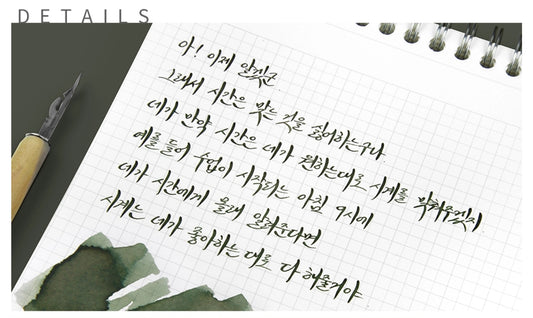 DETAILS
아! 이제 알겠군
그래서 시간은 맞는 것을 싫어하는구나
네가 만약 시간은 네가 원하는대로 시계를 바꿔주겠지
예를 들어 수업이 시작되는 아침 9시에
네가 시간에게 몰래 알려준다면
시계는 네가 좋아하는 대로 다 해줄거야